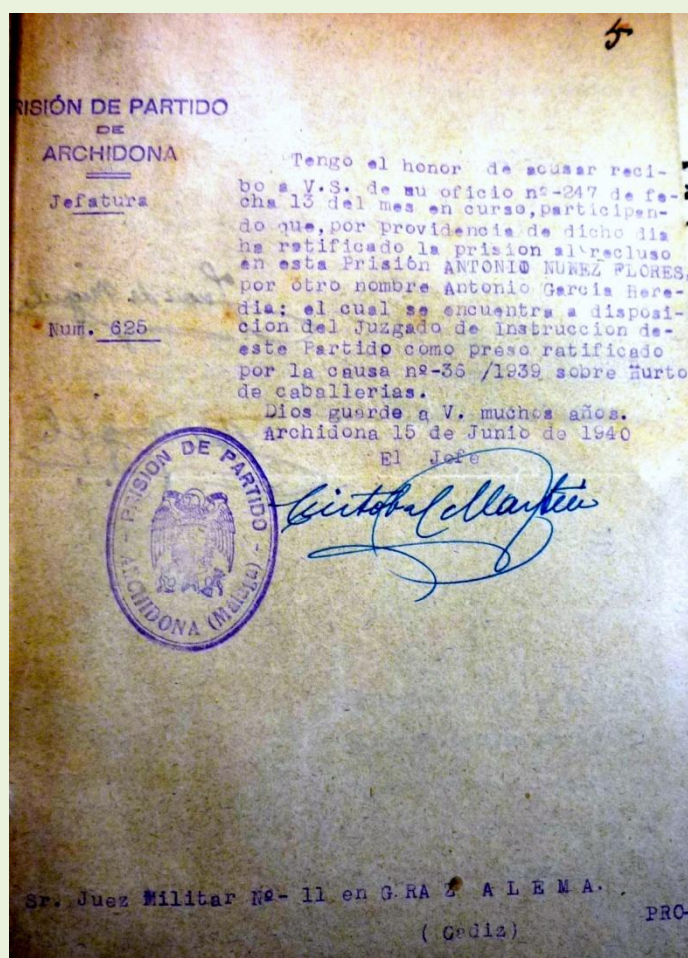 5
RISIÓN DE PARTIDO
DE
ARCHIDONA
Jefatura
Num. 625
Tengo el honor de acusar reci-
bo a V.S. de su oficio nº-247 de fe-
cha 13 del mes en curso,participan-
do que,por providencia de dicho dia
ha ratificado la prision al recluso
en esta Prisión ANTONIO NUÑEZ FLORES,
por otro nombre Antonio Garcia Here-
dia; el cual se encuentra a disposi-
cion del Juzgado de Instruccion de-
este Partido como preso ratificado
por la causa nº-36 /1939 sobre Hurto
de caballerias.
Dios guarde a V. muchos años.
Archidona 15 de Junio de 1940
El Jefe
Cristobal Martin
PRISION DE PARTIDO
ARCHIDONA (Málaga)
Sr. Juez Militar Nº- 11 en G RA Z A L E M A.
PRO-
( Cadiz)